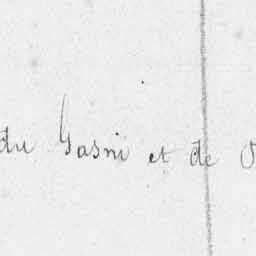 du Gasni et de